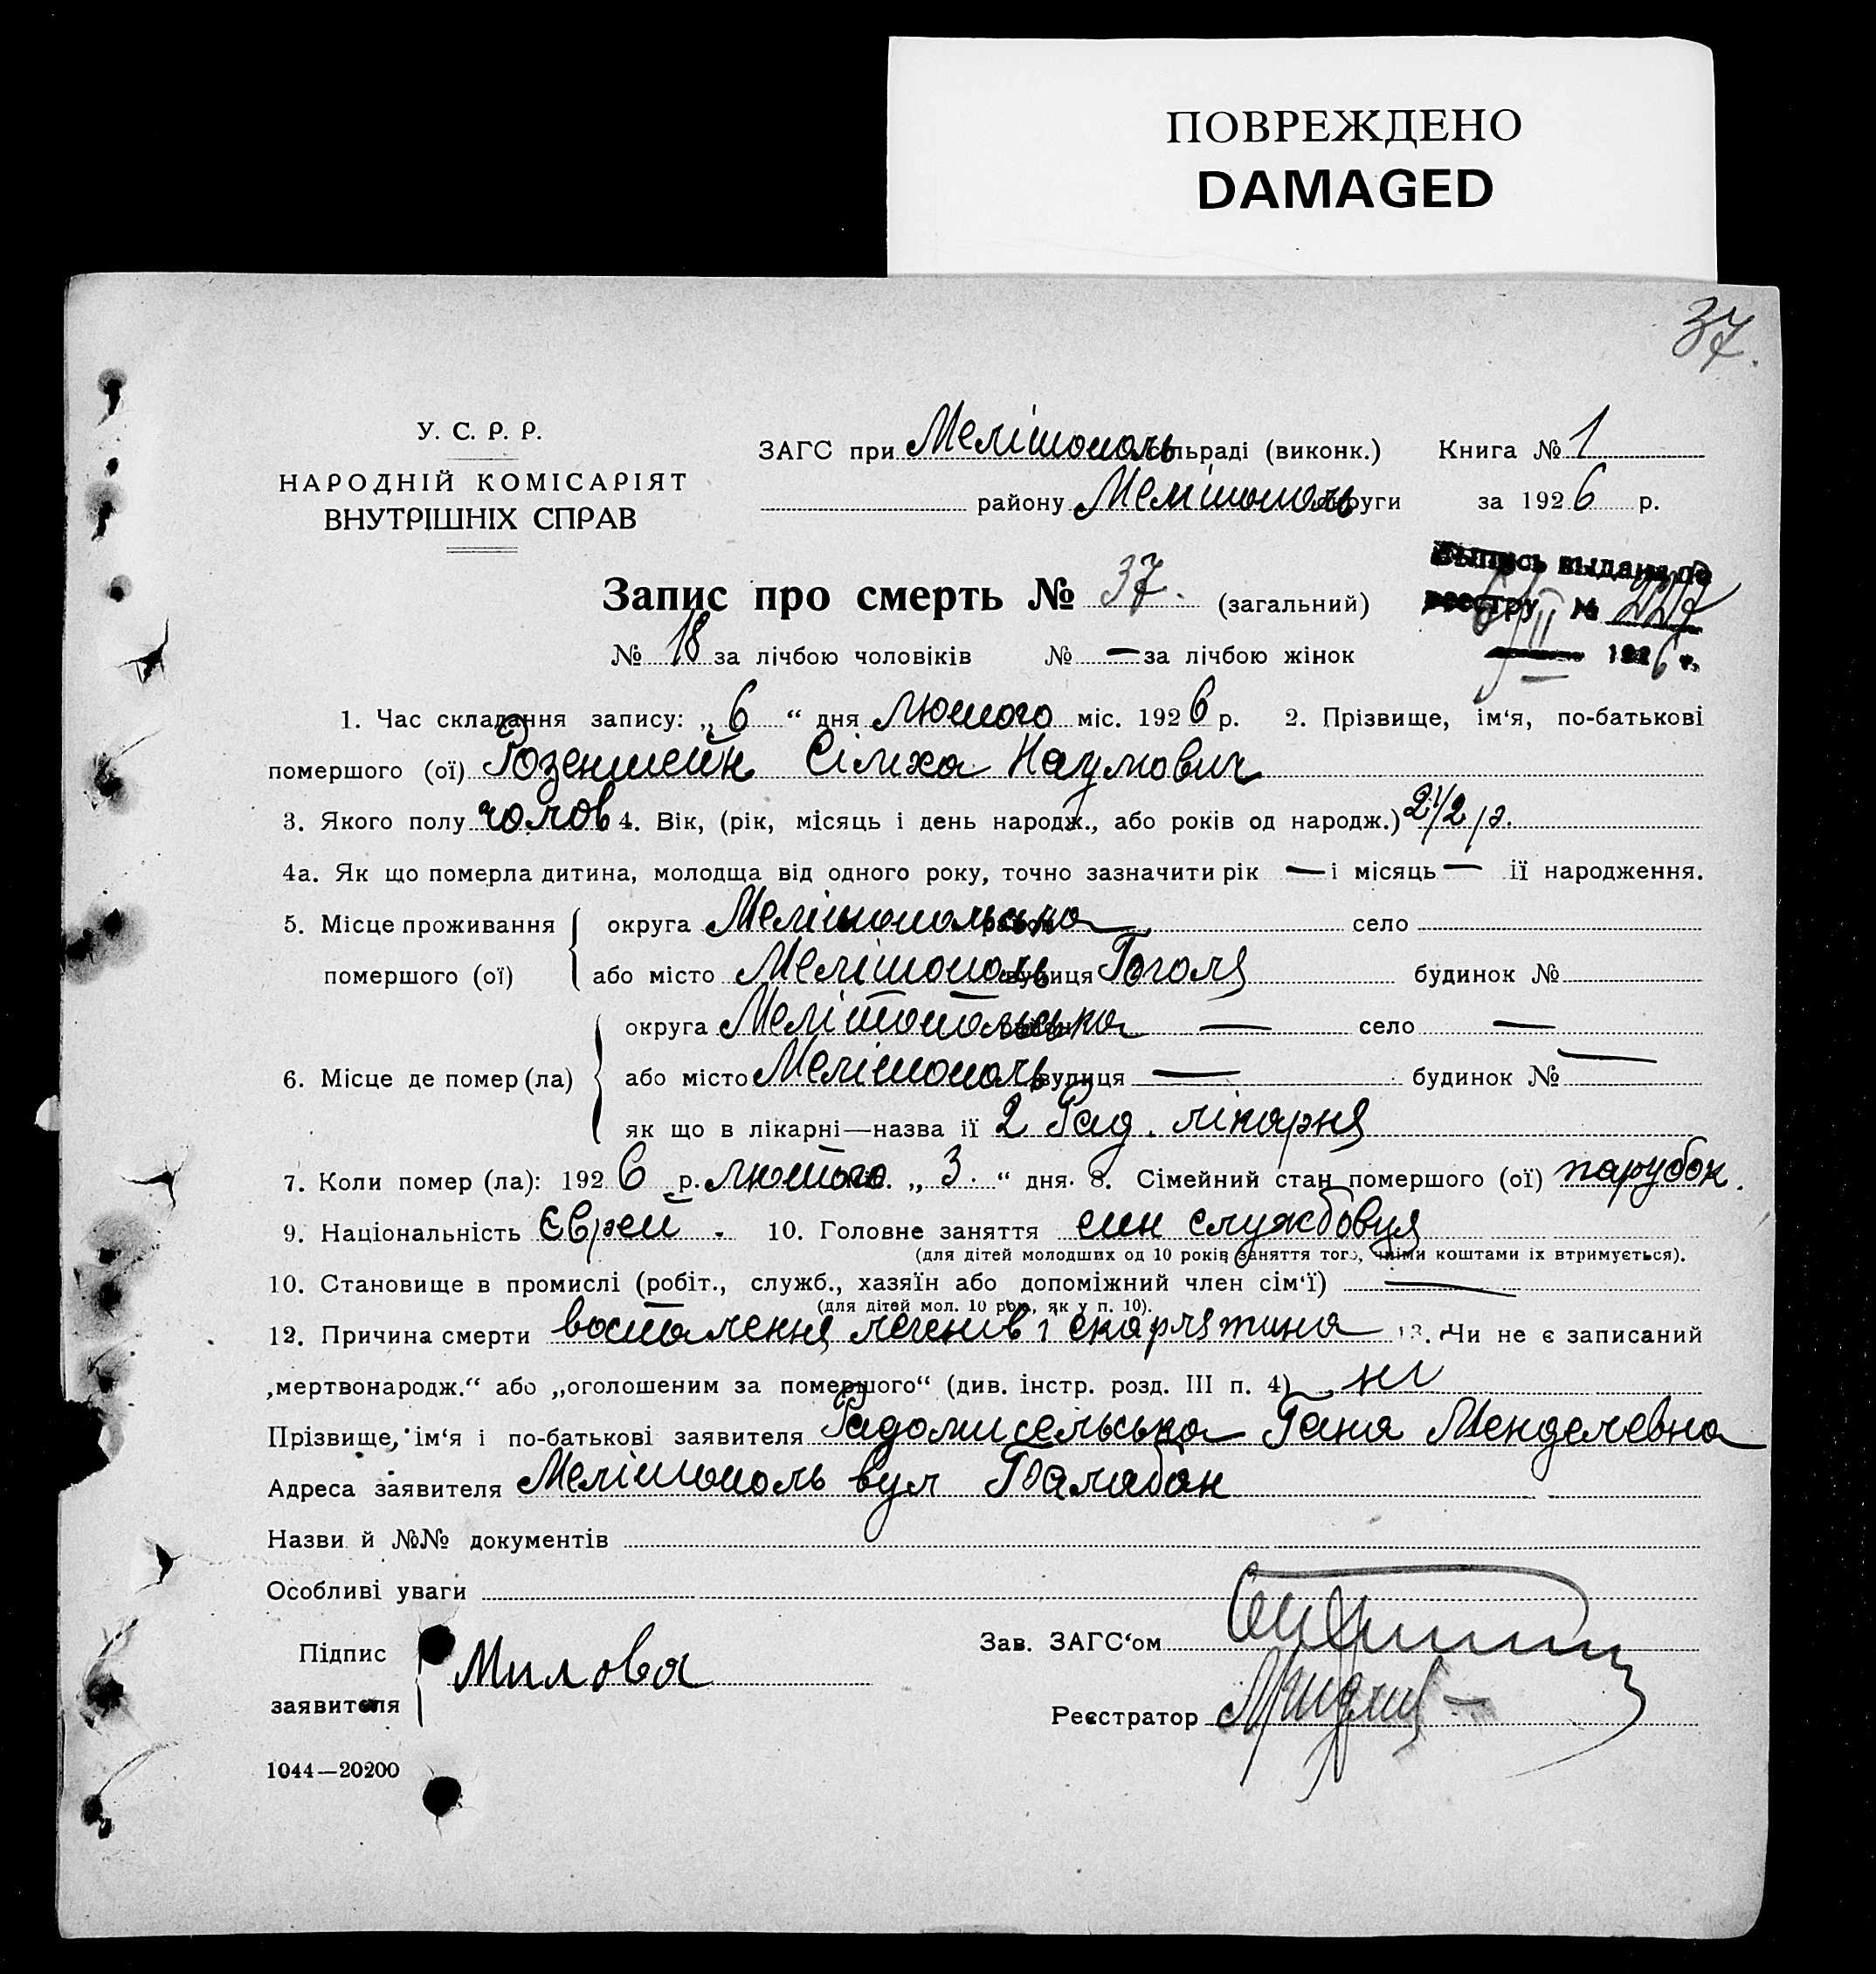 ПОВРЕЖДЕНО
DAMAGED
37.
У. С. Р. Р.
НАРОДНІЙ КОМІСАРІЯТ
ВНУТРІШНІХ СПРАВ
ЗАГС при Мелітополь сільраді (виконк.) Книга № 1
району Мелітополь округи за 1926 р.
Выпись выдана по
реестру № 227
6/II 1926 г.
Запис про смерть № 37. (загальний)
№ 18 за лічбою чоловіків № — за лічбою жінок
1. Час складання запису: „ 6 “ дня лютого міс. 1926 р. 2. Прізвище, ім‘я, по-батькові
помершого (ої) Розенштейн Сімха Наумович
3. Якого полу чолов 4. Вік, (рік, місяць і день народж., або років од народж.) 2 1/2 р.
4а. Як що померла дитина, молодща від одного року, точно зазначити рік — і місяць — її народження.
5. Місце проживання помершого (ої) округа Мелітопольська район село
або місто Мелітополь вулиця Гоголя будинок №
6. Місце де помер (ла) округа Мелітопольська — село —
або місто Мелітополь вулиця — будинок № —
як що в лікарні—назва її 2 Рад. лікарня
7. Коли помер (ла): 1926 р. лютого „ 3. “ дня. 8. Сімейний стан помершого (ої) парубок.
9. Національність Єврей. 10. Головне заняття син службовця
(для дітей молодших од 10 років заняття того, чиїми коштами їх втримується).
10. Становище в промислі (робіт., служб., хазяїн або допоміжний член сім‘ї) —
(для дітей мол. 10 рок., як у п. 10).
12. Причина смерти воспалення легенів і скарлятина 13. Чи не є записаний
„мертвонародж.“ або „оголошеним за помершого“ (див. інстр. розд. III п. 4) ні
Прізвище, ім‘я і по-батькові заявителя Радомисельська Ганя Менделевна
Адреса заявителя Мелітополь вул Балабан
Назви й №№ документів
Особливі уваги
Підпис
заявителя Милова
Зав. ЗАГС‘ом
Реєстратор
1044—20200